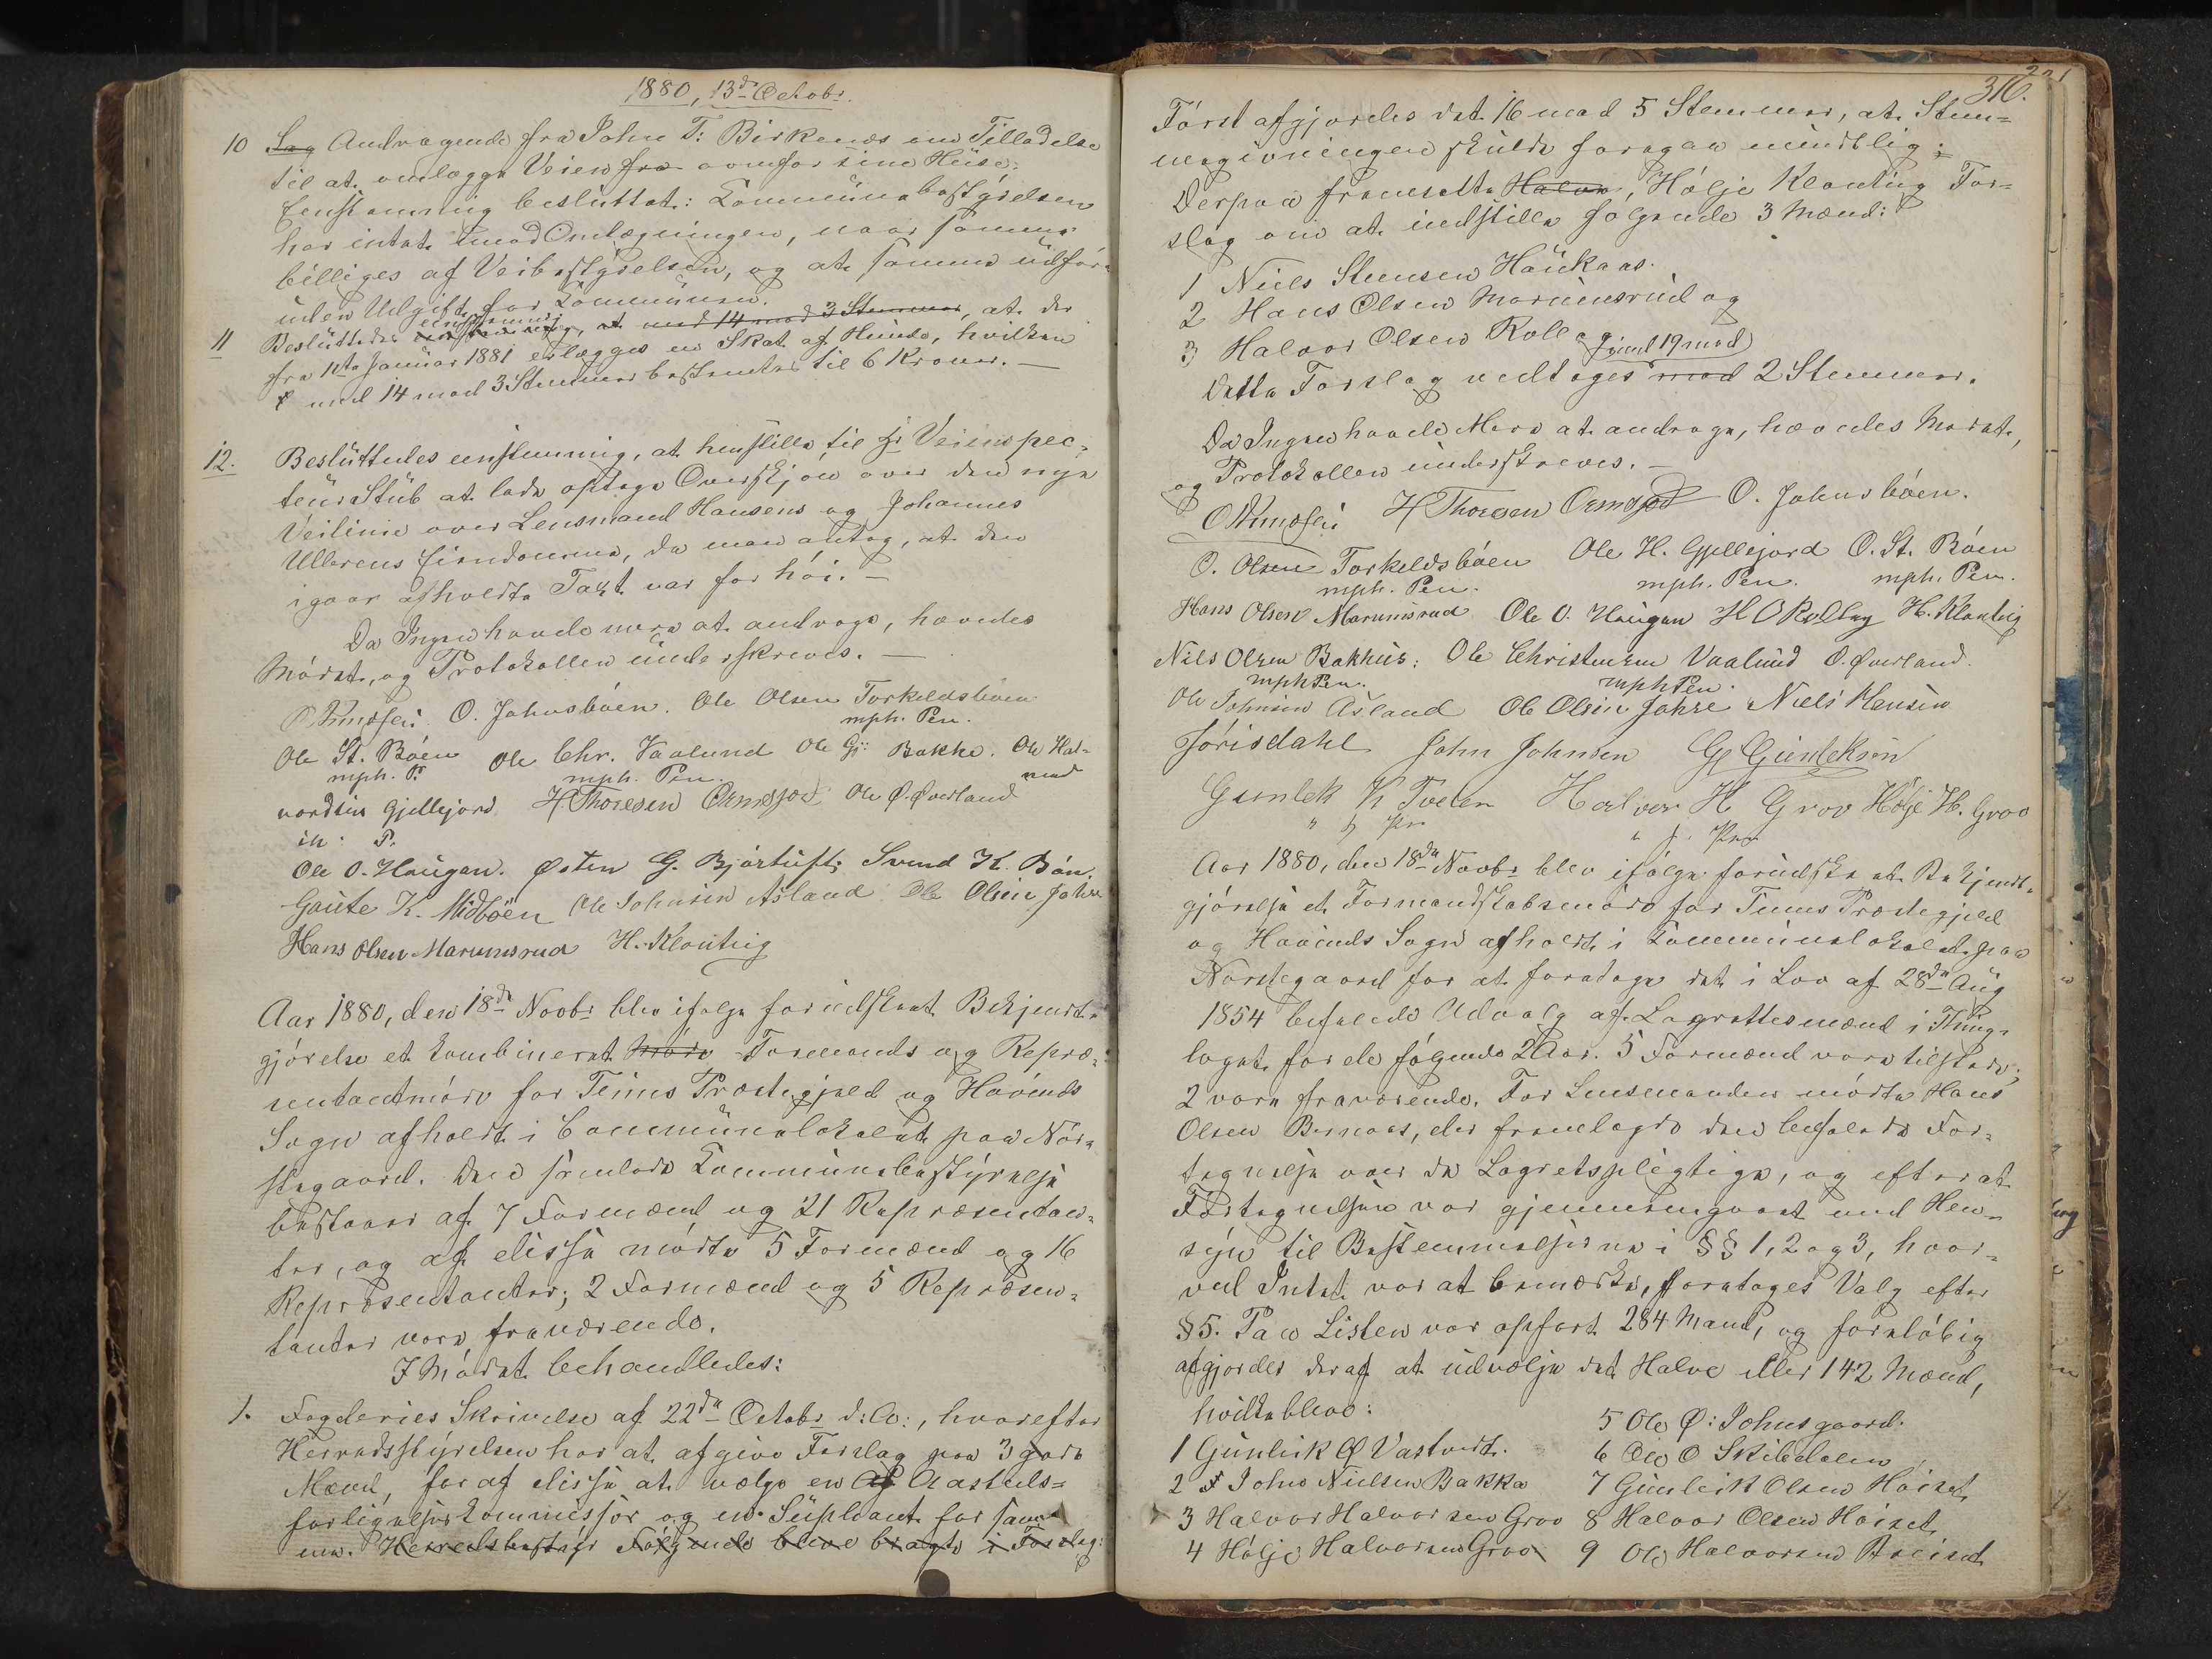 1880, 13de Octobr.
10 Sag Andragende fra John T: Birkenæs om Tilladelse
til at omlægge Veien fra ovenfor sine Huse:
Eenstemmig besluttet: Kommunebestyrelsen
har intet imod Omlægningen, naar samme
billiges af Veibestyrelsen, og at samme udføres
uden Udgift for Kommunen.
11 Besluttedes enstemmig, at med 14 mod 3 Stemmer, at der
fra 1ste Januar 1881 erlægges en Skat af Hunde, hvilken
med 14 mod 3 Stemmer bestemtes til 6 Kroner. —
12. Besluttedes eenstemmig, at henstille til Hr Veiinspec-
teur Stub at lade optage Overskjøn over den nye
Veilinie over Lensmand Hansens og Johannes
Ullerens Eiendomme, da man antog, at den
igaar afholdte Taxt var for høi. —
Da Ingen havde mere at andrage, hævedes
Mødet, og Protokollen underskreves. —
O. Johnsbøen. Ole Olsen Torkeldsbøen
mph. Pen.
Ole St. Bøen Ole Chr. Vaalund Ole G: Bakke. Ole Hal-
mph. P. mph. Pen.
vordsen Gjellejord H Thoresen Ormsjod Ole Ø. Øverland
med
in. P.
Ole O. Haugan. Østen G. Bjørtuft; Svend K. Bøn.
Gaute K. Midbøen Ole Johnsen Åsland Ole Olsen Jahre
Hans Olsen Marumsrud H. Klonteig
Aar 1880, den 18de Novbr blev ifølge forudskeet Bekjendt-
gjørelse et kombineret Møde Formands og Repræ-
sentantmøde for Tinns Præstegjeld og Hovinds
Sogn afholdt i Communelokalet paa Nør-
stegaard. Den samlede Kommunebestyrelse
bestaar af 7 Formænd og 21 Repræsentan-
ter, og af disse mødte 5 Formænd og 16
Repræsentanter; 2 Formænd og 5 Repræsen-
tanter vare fraværende.
I Mødet behandledes:
1. Fogderies Skrivelse af 22de Octobr d: A:, hvorefter
Herredsstyrelsen har at afgive Forslag paa 3 gode
Mænd, for af disse at vælge en Af Aasteds-
forligelseskommissær og en Supleant for sam-
me. Herredsbestyr Følgende bleve bragte i Forslag:
316.
Først afgjordes det 16 mod 5 Stemmer, at Stem-
megivningen skulde foregaa mundtlig:
Derpaa fremsatte Halvor, Hølje Klonteig For-
slag om at indstille følgende 3 Mænd:
1 Niels Steensen Haukaas.
2 Hans Olsen Marumsrud og
3 Halvor Olsen Rollag
med 19 mod
Dette Forslag vedtoges mod 2 Stemmer.
Da Ingen havde Mere at andrage, hævedes Mødet,
og Protokollen underskreves. —
H Thoresen Ormsjod O. Johnsbøen.
O. Olsen Torkeldsbøen Ole H. Gjellejord O. St. Bøen
mph. Pen. mph. Pen. mph. Pen.
Hans Olsen Marumsrud Ole O. Haugan H O Rollag H. Klonteig
Niels Olsen Bakhus: Ole Christensen Vaalund O. Øverland.
mph Pen. mph Pen.
Ole Johnsen Åsland Ole Olsen Jahre Niels Hansen
Jørisdahl John Johnsen G Gunleksen
Gunlek K Tveten Halvor H Grov Hølje H. Groo
Aar 1880, den 18de Novbr blev ifølge forudskeet Bekjendt-
gjørelse et Formandskabsmøde for Tinns Præstegjeld
og Hovinds Sogn afholdt i Kommunelokalet paa
Nørstegaard for at foretage det i Lov af 28de Aug
1854 befalede Udvalg af Lagrettesmænd i Thing-
laget for de følgende 2 Aar. 5 Formænd vare tilstede;
2 vare fraværende. For Lensmanden mødte Hans
Olsen Bernaas, der fremlagde den befalede For-
tegnelse over de Lagretspligtige, og efter at
Fortegnelsen var gjennemgaaet med Hen-
syn til Bestemmelserne i §§ 1, 2 og 3, hvor-
ved Intet var at bemærke, foretoges Valg efter
§5. Paa Listen var opført 284 Mand, og foreløbig
afgjordes deraf at udvælge det Halve eller 142 Mænd,
hvilke bleve:
1 Gunleik Ø Vastveit.
2 John Nielsen Bakka
3 Halvor Halvorsen Groo
4 Hølje Halvorsen Groo
5 Ole Ø: Johnsgaard.
6 Ole O Skibdalen
7 Gunleik Olsen Høiset
8 Halvor Olsen Høiset
9 Ole Halvorsen